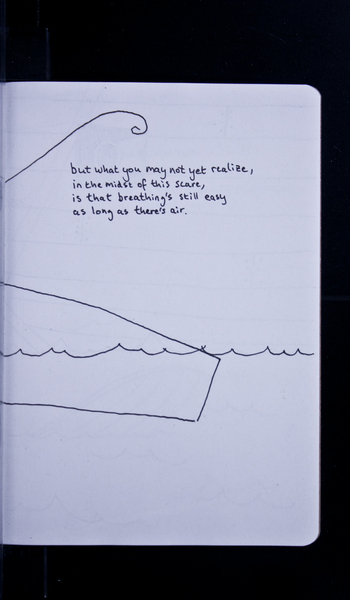 but what you may not yet realize,
in the midst of this scare,
is that breathing's still easy
as long as there's air.